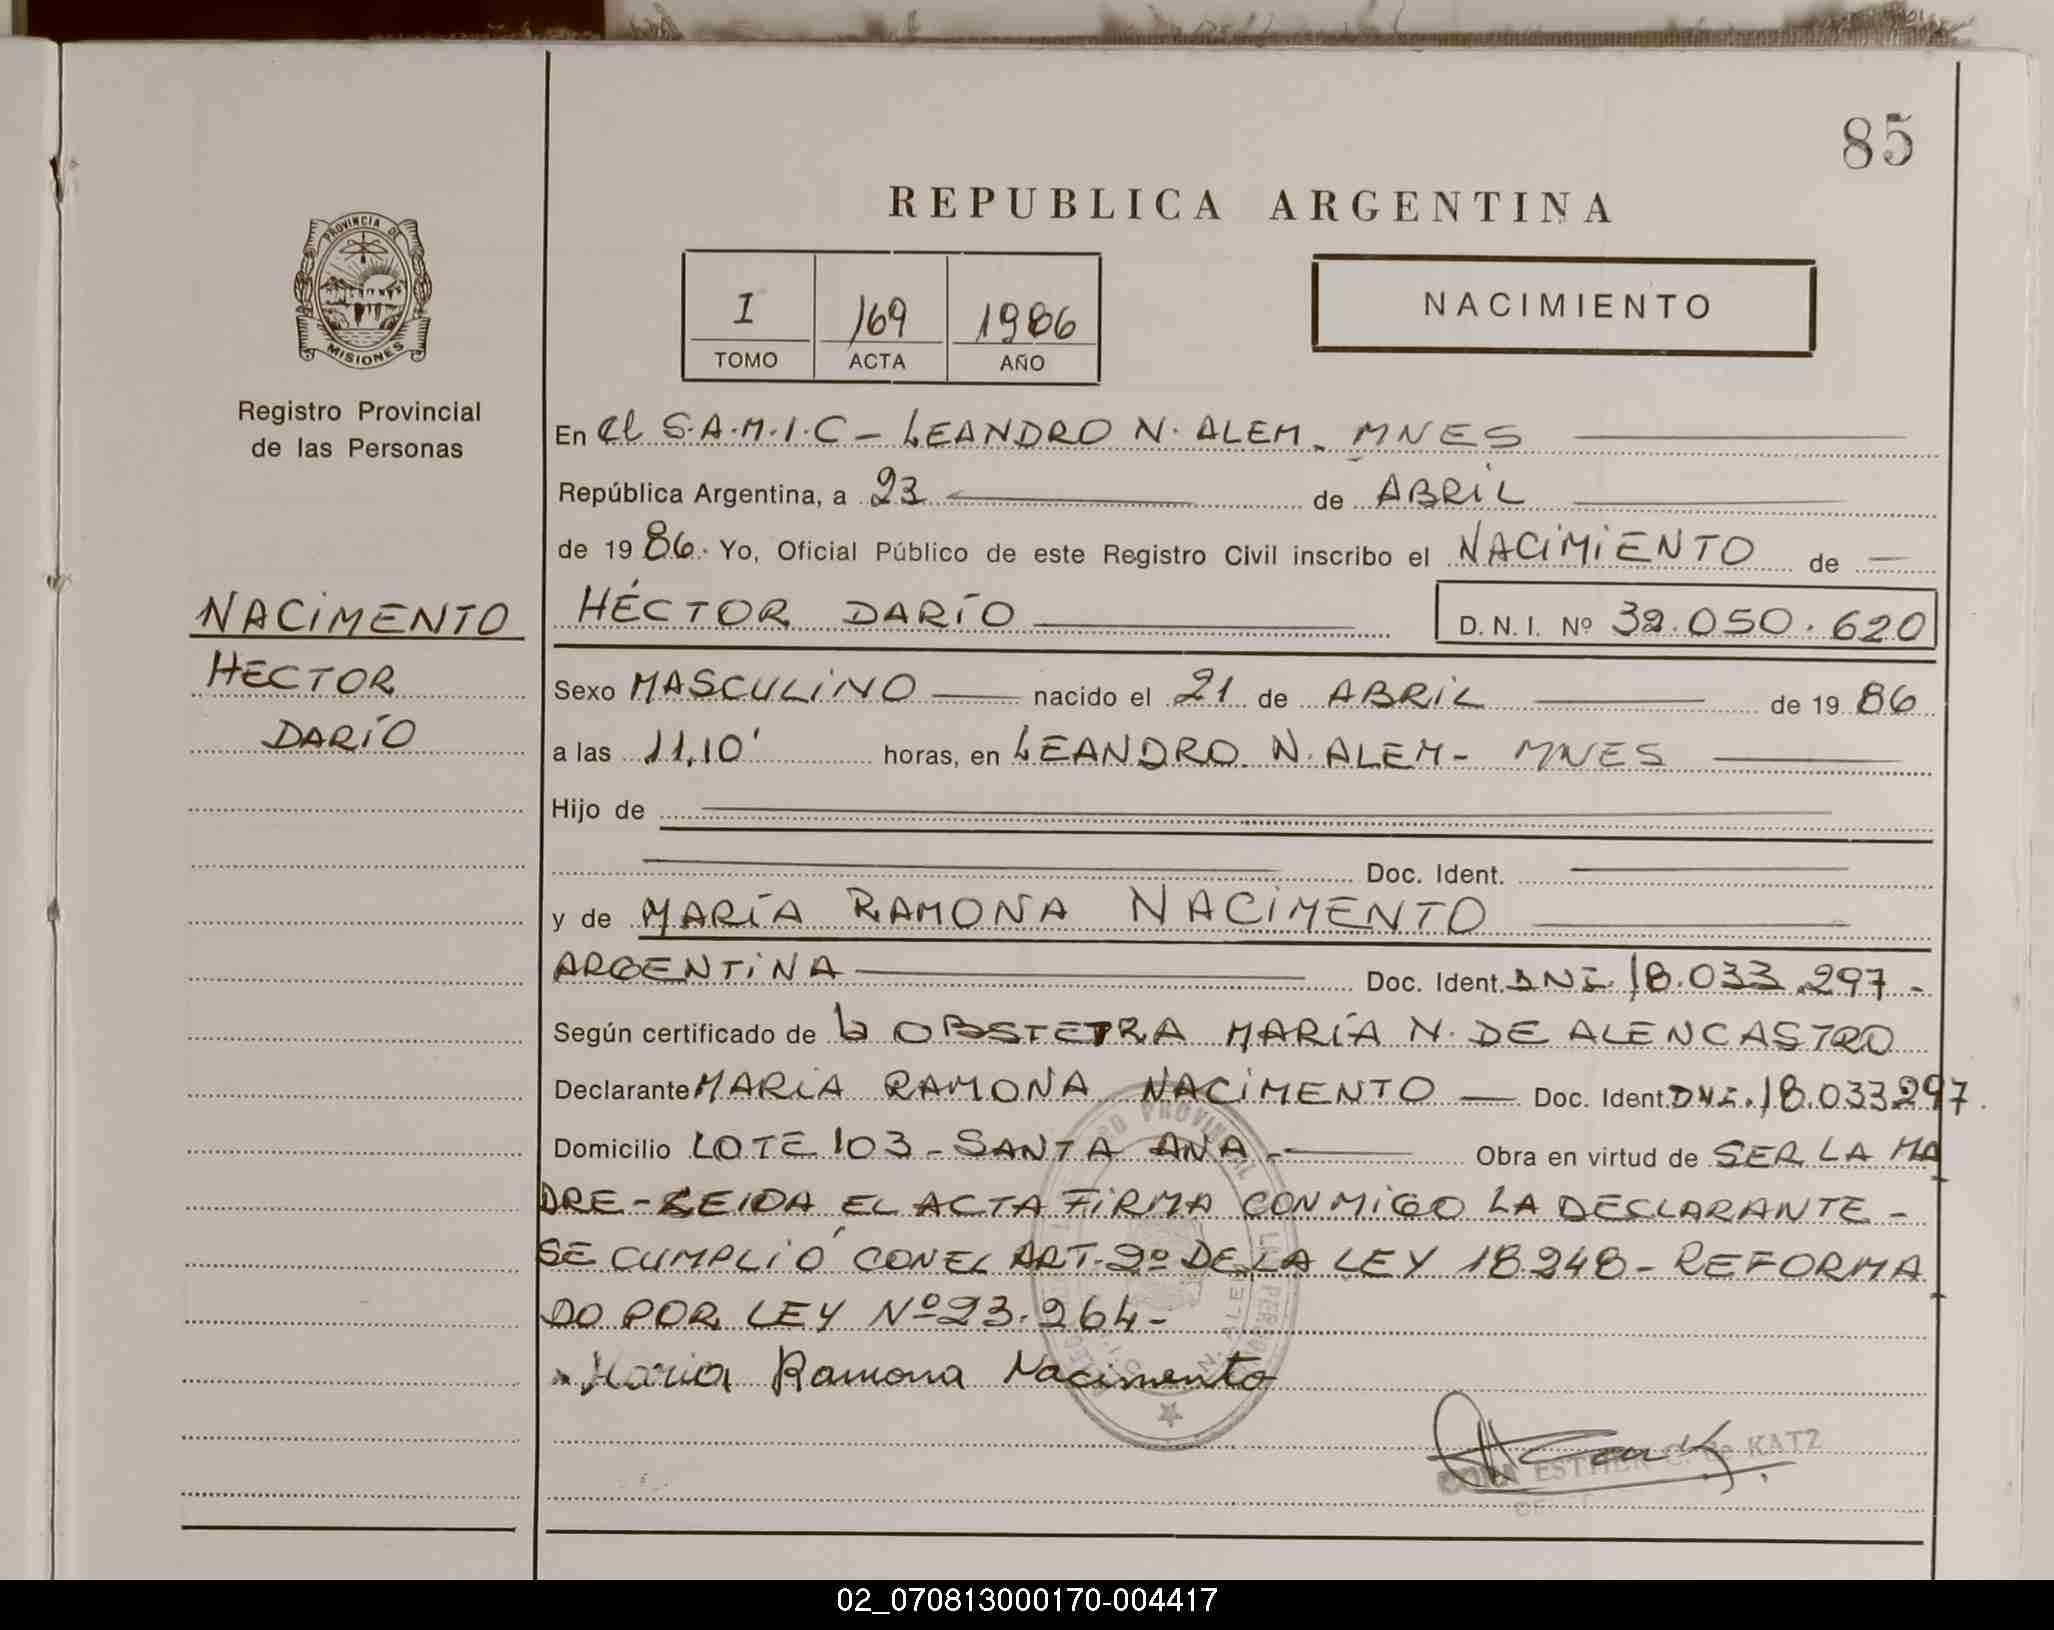 85
REPUBLICA ARGENTINA
PROVINCIA DE
MISIONES
I 169 1986
TOMO ACTA AÑO
NACIMIENTO
Registro Provincial
de las Personas
NACIMENTO
HECTOR
DARÍO
En el S.A.M.I.C - LEANDRO N. ALEM - MNES
República Argentina, a 23 de ABRIL
de 1986. Yo, Oficial Público de este Registro Civil inscribo el NACIMIENTO de
HÉCTOR DARÍO D.N.I. Nº 32.050.620
Sexo MASCULINO nacido el 21 de ABRIL de 1986
a las 11,10' horas, en LEANDRO N. ALEM - MNES
Hijo de
Doc. Ident.
y de MARÍA RAMONA NACIMENTO
ARGENTINA Doc. Ident. DNI. 18.033.297-
Según certificado de la OBSTETRA MARÍA N. DE ALENCASTRO
Declarante MARIA RAMONA NACIMENTO Doc. Ident. DNI. 18.033297.
Domicilio LOTE 103 - SANTA ANA - Obra en virtud de SER LA MA
DRE - LEIDA EL ACTA FIRMA CONMIGO LA DECLARANTE -
SE CUMPLIÓ CON EL ART. 2º DE LA LEY 18248 - REFORMA
DO POR LEY Nº 23.264-
Maria Ramona Nacimento
ESTHER C. de KATZ
02_070813000170-004417